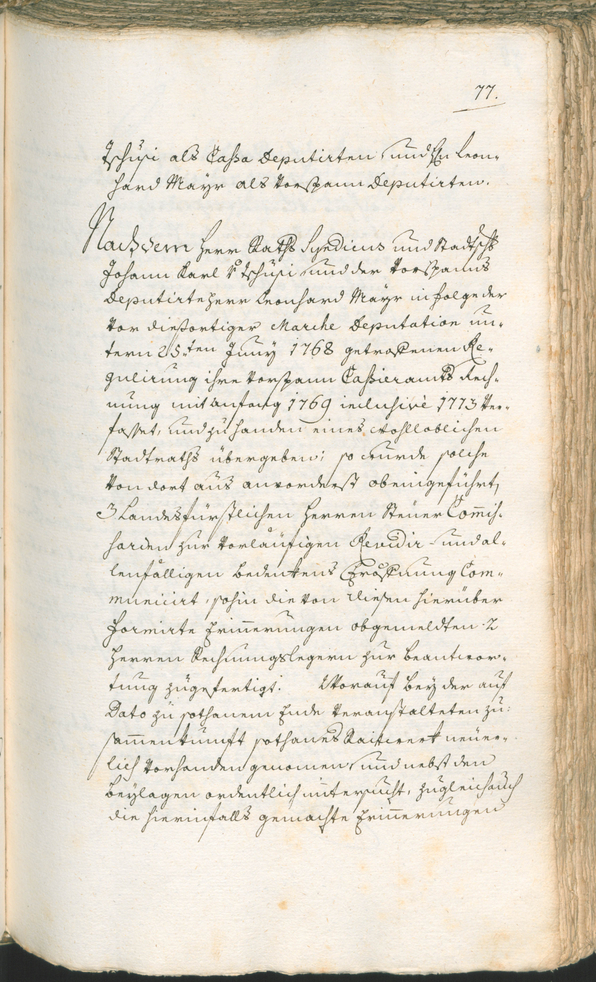 77.
Tschusi als Cassa Deputirten und Hn Leon-
hard Mayr als Vorspann Deputirten.
Nachdem Herr Raths Syndicus und Stadtsch
Johann Karl v Tschusi und der Vorspanns
Deputirte Herr Leonhard Mayr in folge der
Vor diesortiger Marche Deputation un-
term 25.ten Juny 1768 getrofenen Re-
gulirung ihre Vorspann Cassieramts Rech-
nung mit anfang 1769 inclusive 1773 Ver-
fasset, und zu handen eines Wohlloblichen
Stadtraths übergeben; so wurde solche
Von dort aus anvorderst obeingeführt,
3 Landesfürstlichen Herren Steuer Com̄is-
sarien zur Vorläufigen Revidir- und al-
lenfälligen bedenkens Eröfnung Com-
municirt, sohin die von diesen hierüber
formirte Erin̄erungen obgemeldten 2
Herren Rechnungslegern zur beantwor-
tung zugefertigt. Worauf bey der auf
Dato zu sothanem Ende Veranstalteten zu-
sam̄enkunft sothanes Raitwerk neuer-
lich Vorhanden genomen, und nebst den
beylagen ordentlich untersucht, zugleich auch
die hierinfalls gemachte Erin̄erungen